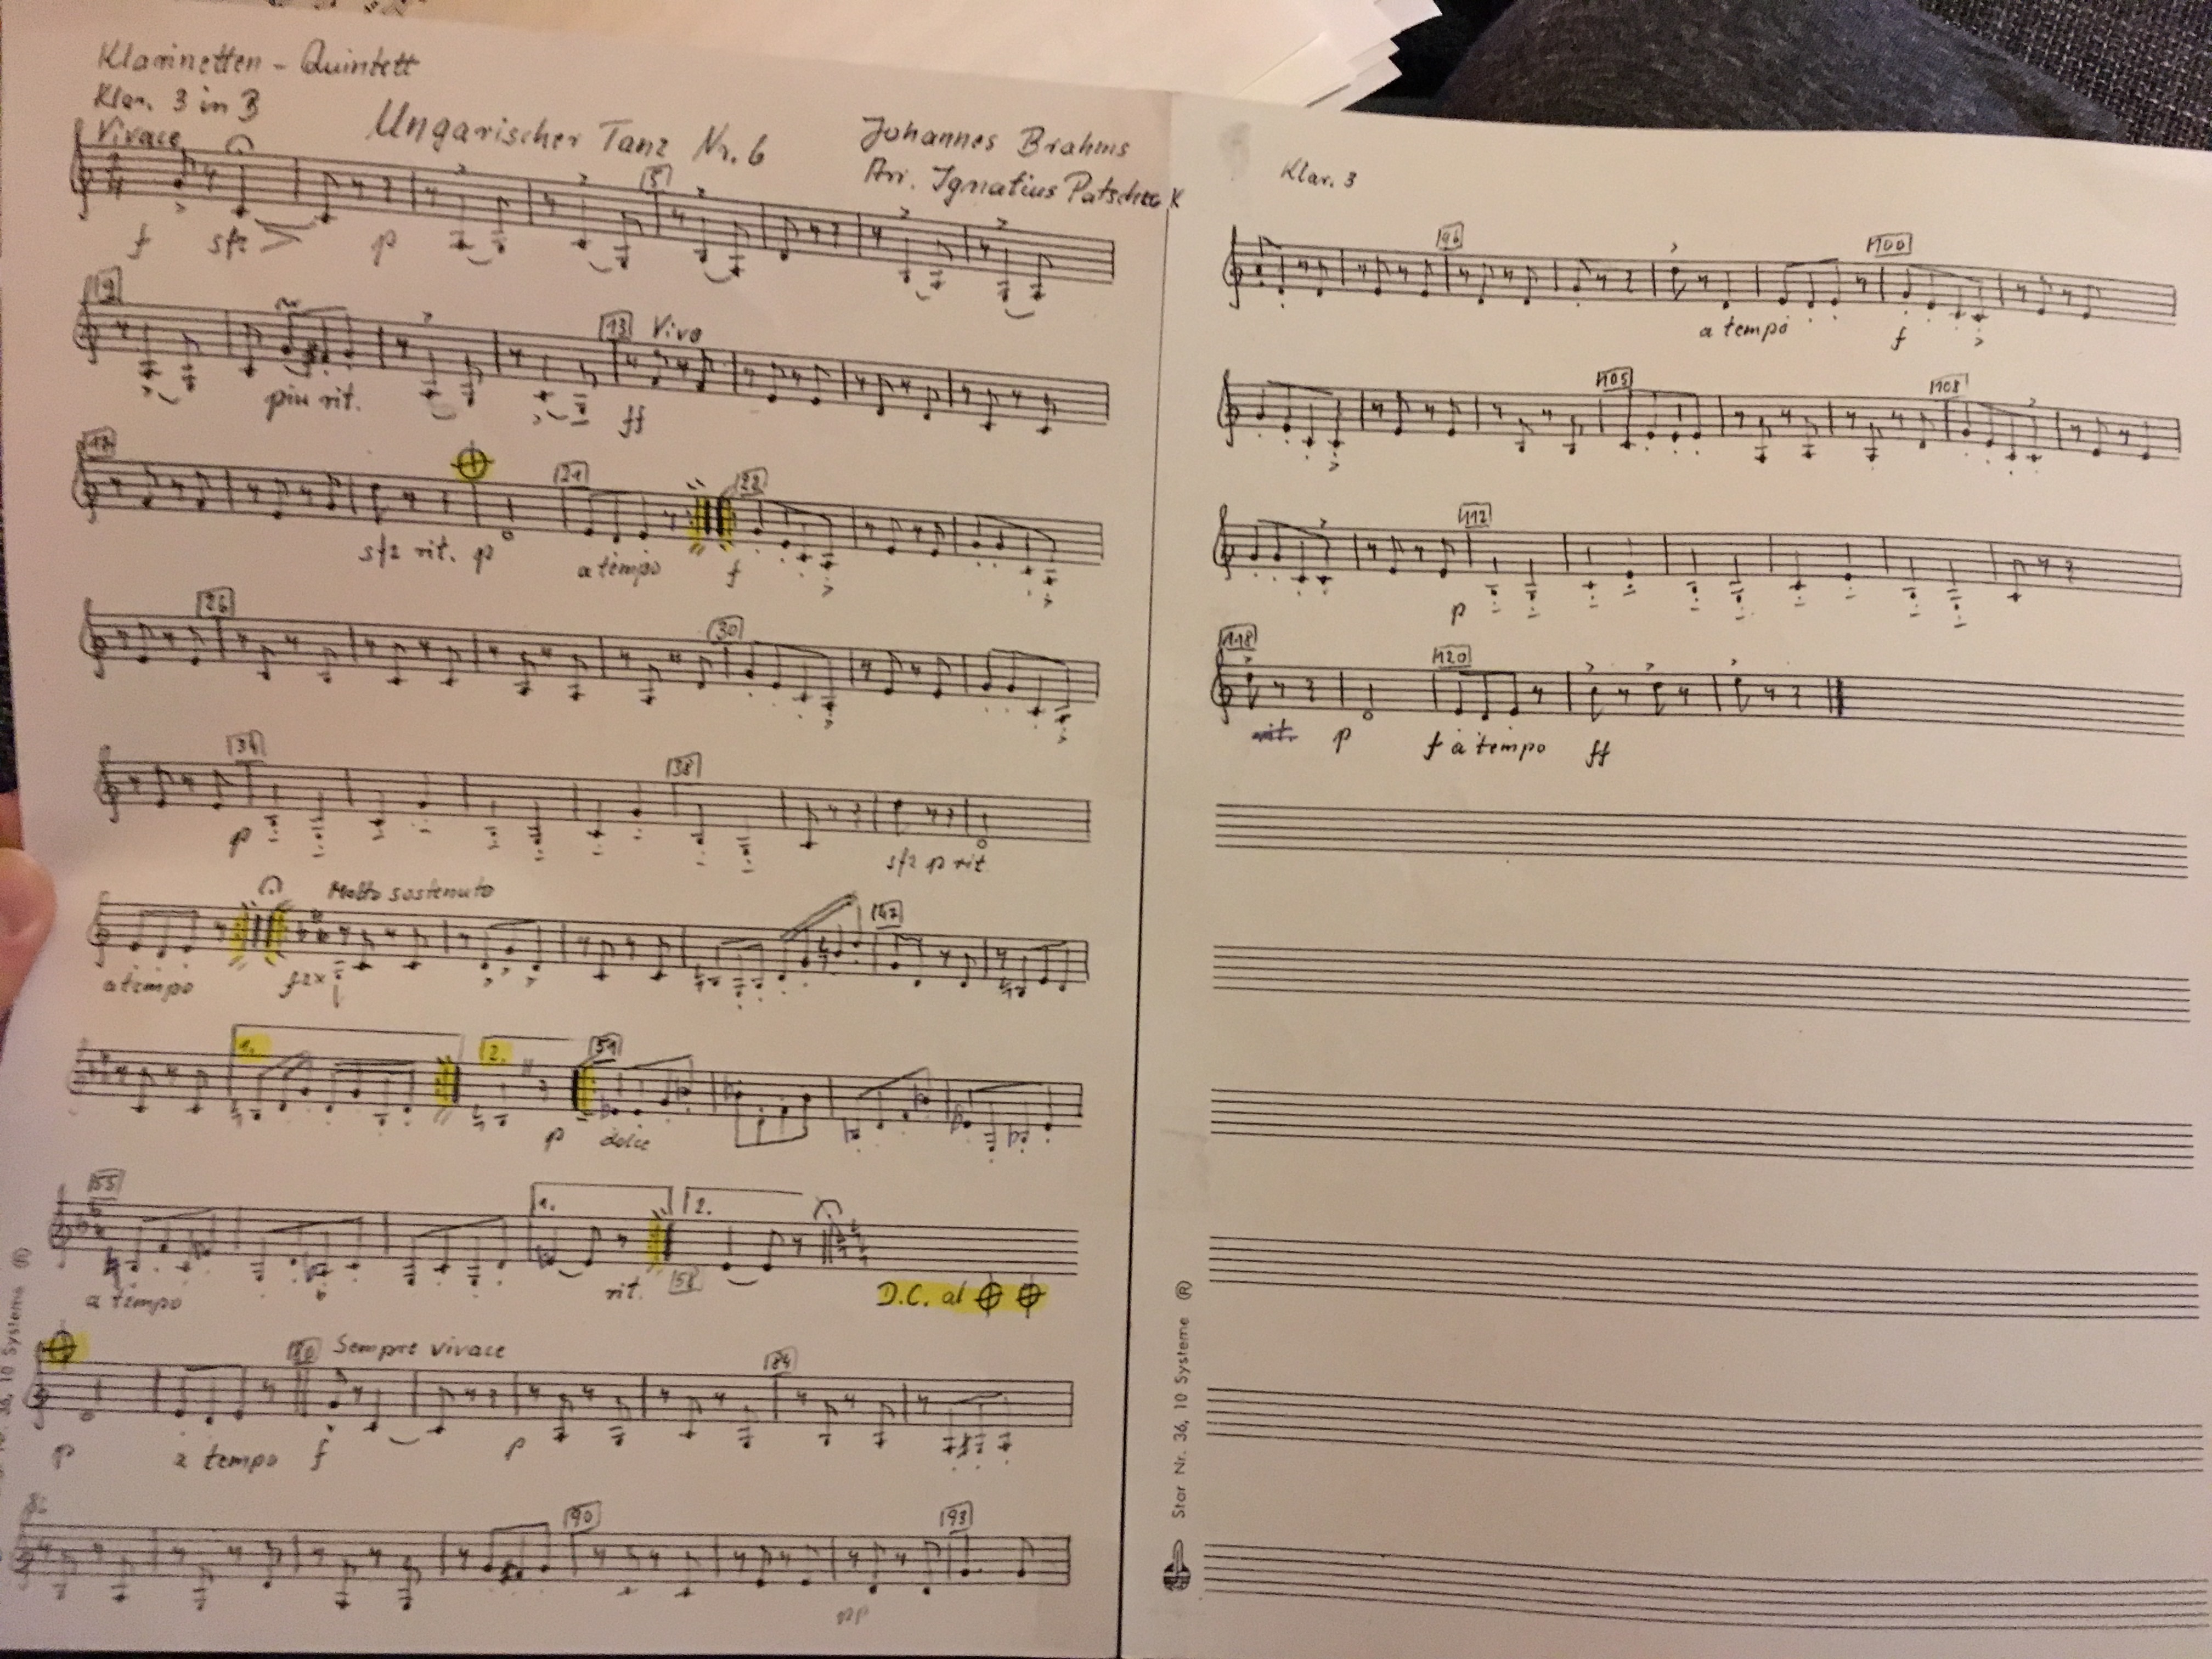 Klarinetten - Quintett
Klar. 3 in B
Vivace
Ungarischer Tanz Nr. 6
Johannes Brahms
Arr. Ignatius Patscheck
5
f sfz p
9 13 Vivo
piu rit. ff
17 21 22
sfz rit. p a tempo f
26 30
34 38
p sfz p rit.
Molto sostenuto 47
a tempo f
1. 2. 51
p dolce
55 1. 2.
a tempo rit. 58 D.C. al
80 Sempre vivace 84
p a tempo f p
86 90 93
pp
Klar. 3
96 100
a tempo f
105 108
112
p
118 120
rit. p f a tempo ff
Star Nr. 36, 10 Systeme ®
36, 10 Systeme ®